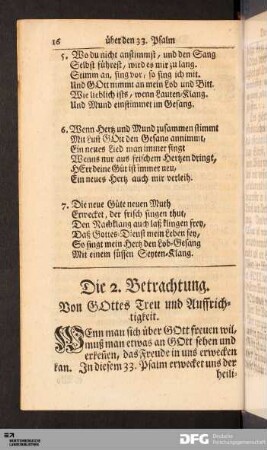 16 über den 33. Psalm
5. Wo du nicht anstimmst, und den Sang
Selbst führest, wird es mir zu lang.
Stimm an, sing vor, so sing ich mit.
Und GOtt nimmt an mein Lob und Bitt.
Wie lieblich ists, wenn Lauten-Klang.
Und Mund einstimmet im Gesang.
6. Wenn Hertz und Mund zusammen stimmt
Mit Lust GOtt den Gesang annimmt,
Ein neues Lied man immer singt
Wenns nur aus frischem Hertzen dringt,
HErr deine Güt ist immer neu,
Ein neues Hertz auch mir verleih.
7. Die neue Güte neuen Muth
Erwecket, der frisch singen thut,
Den Nachklang auch laß klingen frey,
Daß Gottes-Dienst mein Leben sey,
So singt mein Hertz den Lob-Gesang
Mit einem süssen Seyten-Klang.
Die 2. Betrachtung.
Von GOttes Treu und Auffrich-
tigkeit.
WEnn man sich über GOtt freuen wil,
muß man etwas an GOtt sehen und
erkeñen, das Freude in uns erwecken
kan. In diesem 33. Psalm erwecket uns der
heili-
DFG